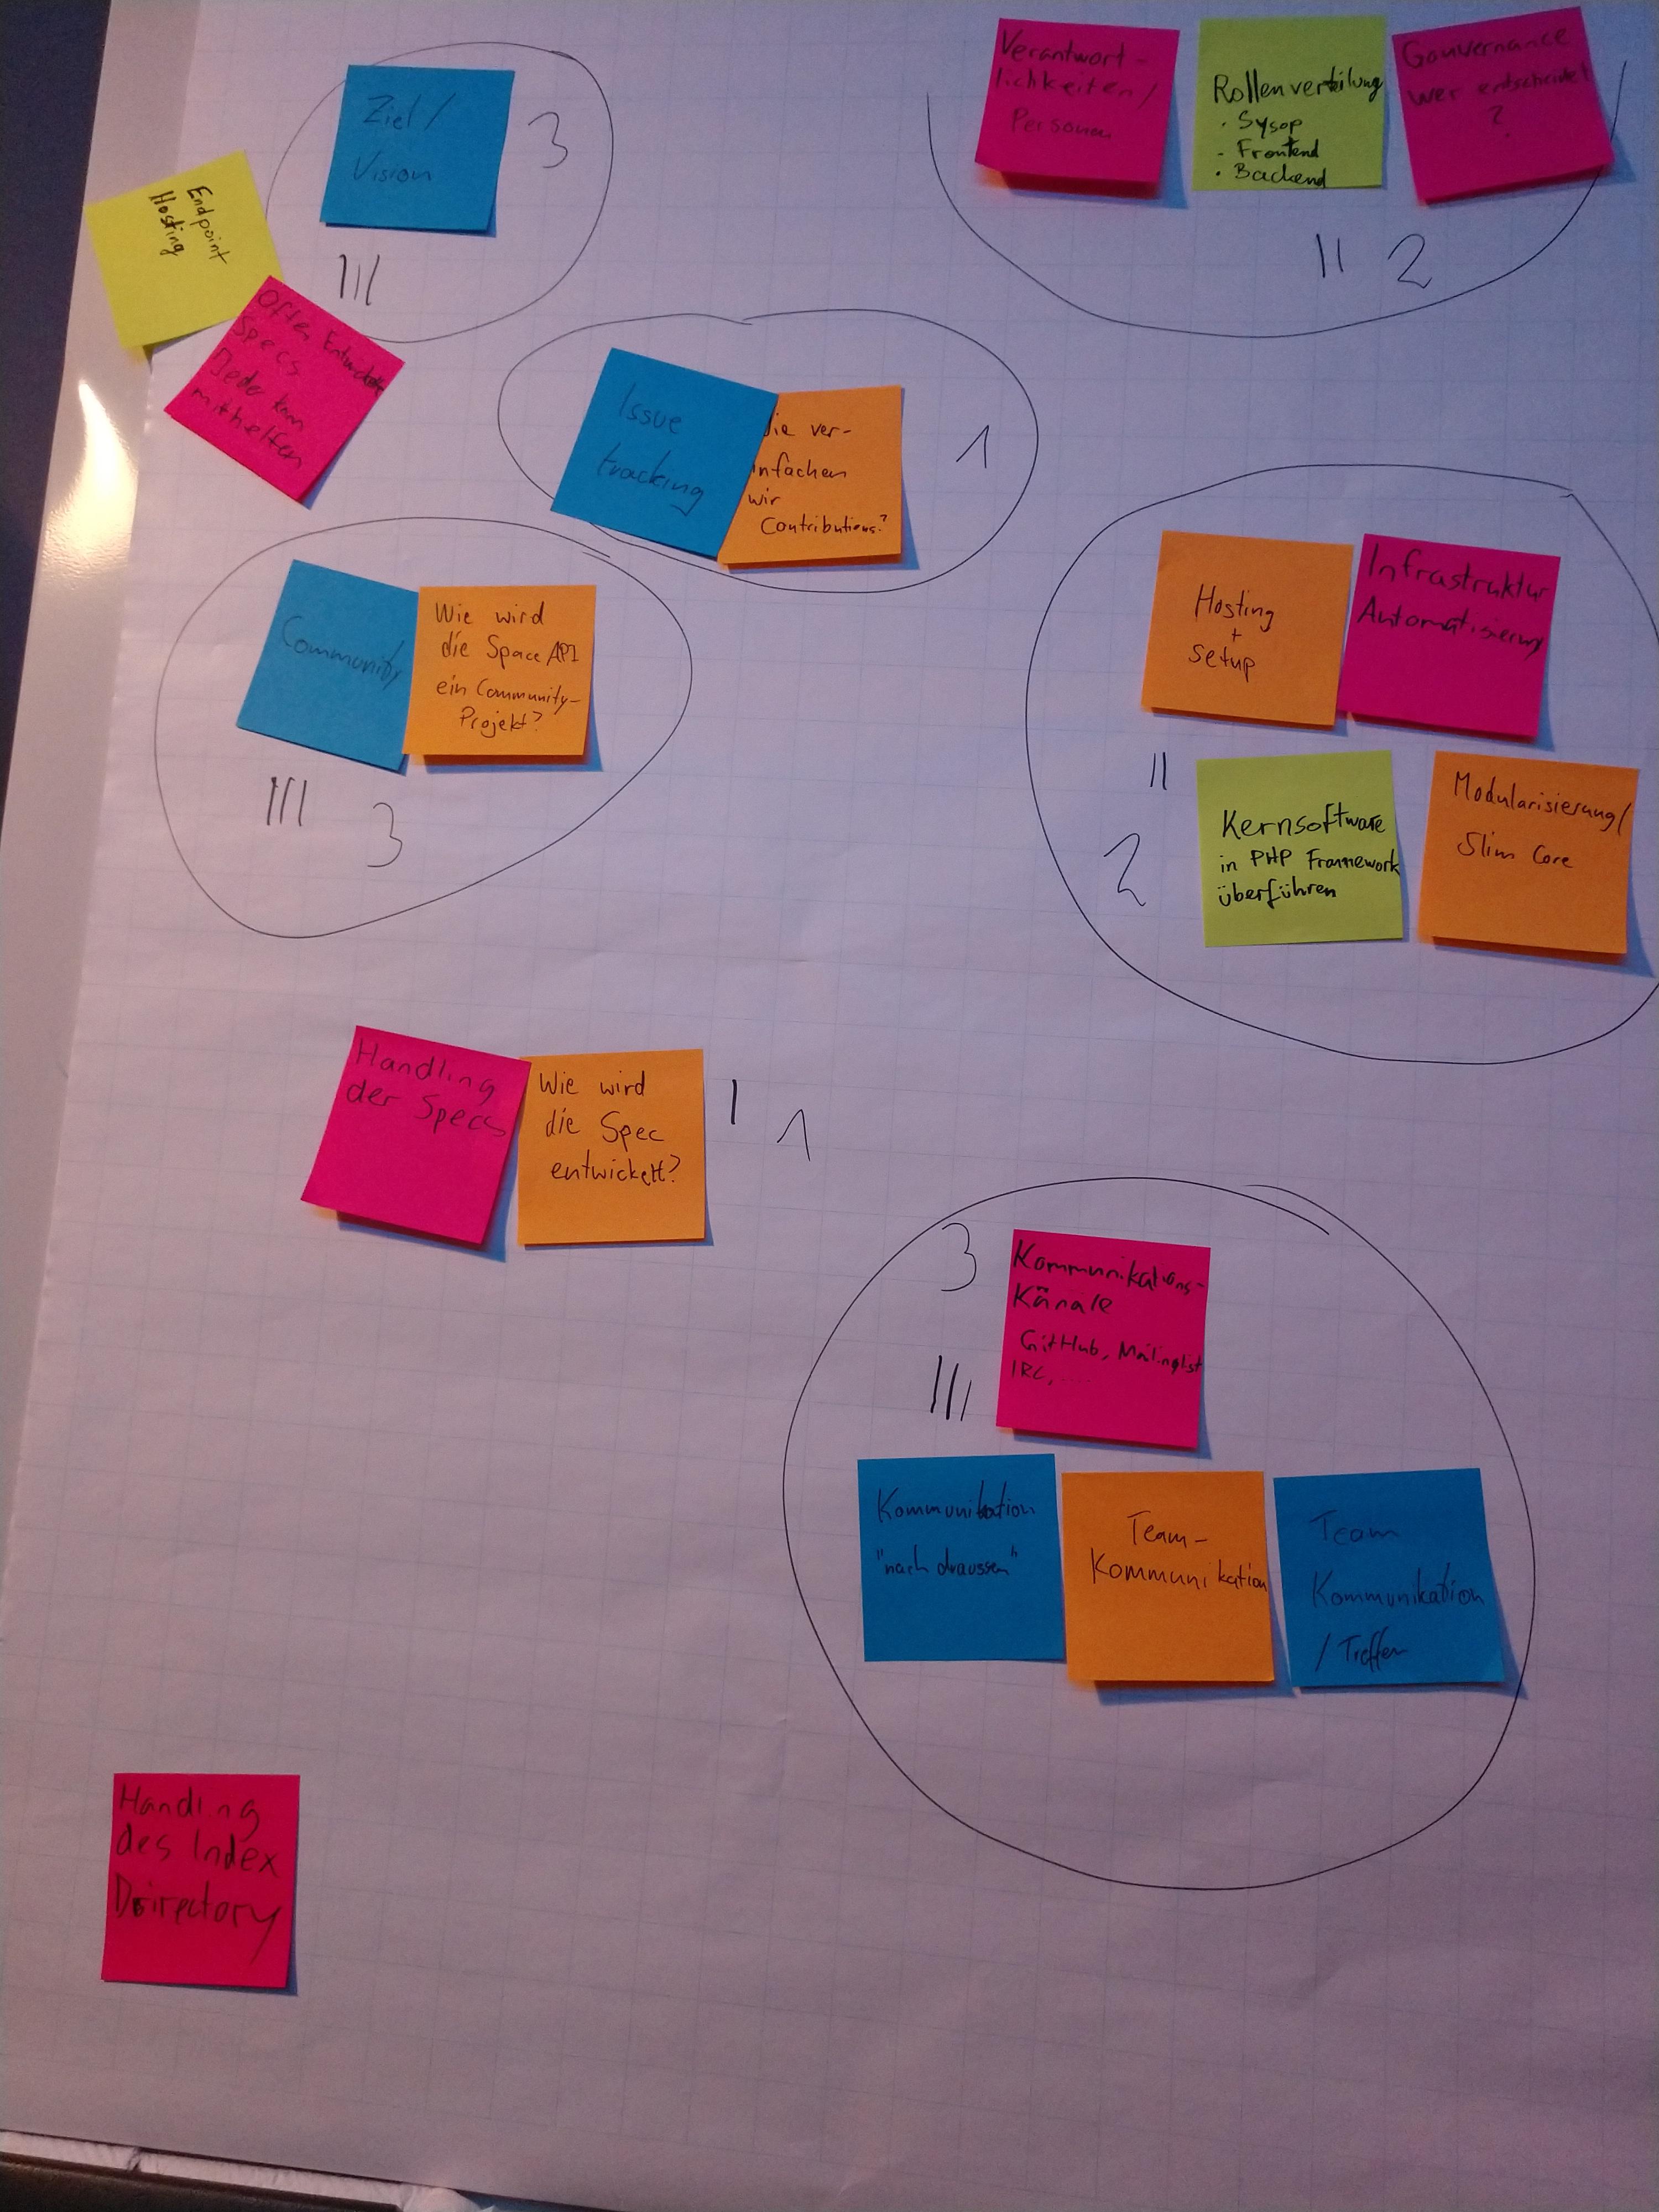 Ziel /
Vision
3
III
Endpoint
Hosting
Offen Entwickelte
Specs
Jeder kann
mithelfen
Verantwort-
lichkeiten /
Personen
Rollenverteilung
· Sysop
- Frontend
· Backend
Gouvernance
wer entscheidet
?
II 2
Issue
tracking
die ver-
infachen
wir
Contributions?
1
Community
Wie wird
die Space API
ein Community-
Projekt?
III 3
Hosting
+
Setup
Infrastruktur
Automatisierung
II
2
Kernsoftware
in PHP Framework
überführen
Modularisierung/
Slim Core
Handling
der Specs
Wie wird
die Spec
entwickelt?
I 1
3
III
Kommunikations-
Känale
GitHub, Mailinglist
IRC, ....
Kommunikation
"nach draussen"
Team-
Kommunikation
Team
Kommunikation
/ Treffen
Handling
des Index
Doirectory